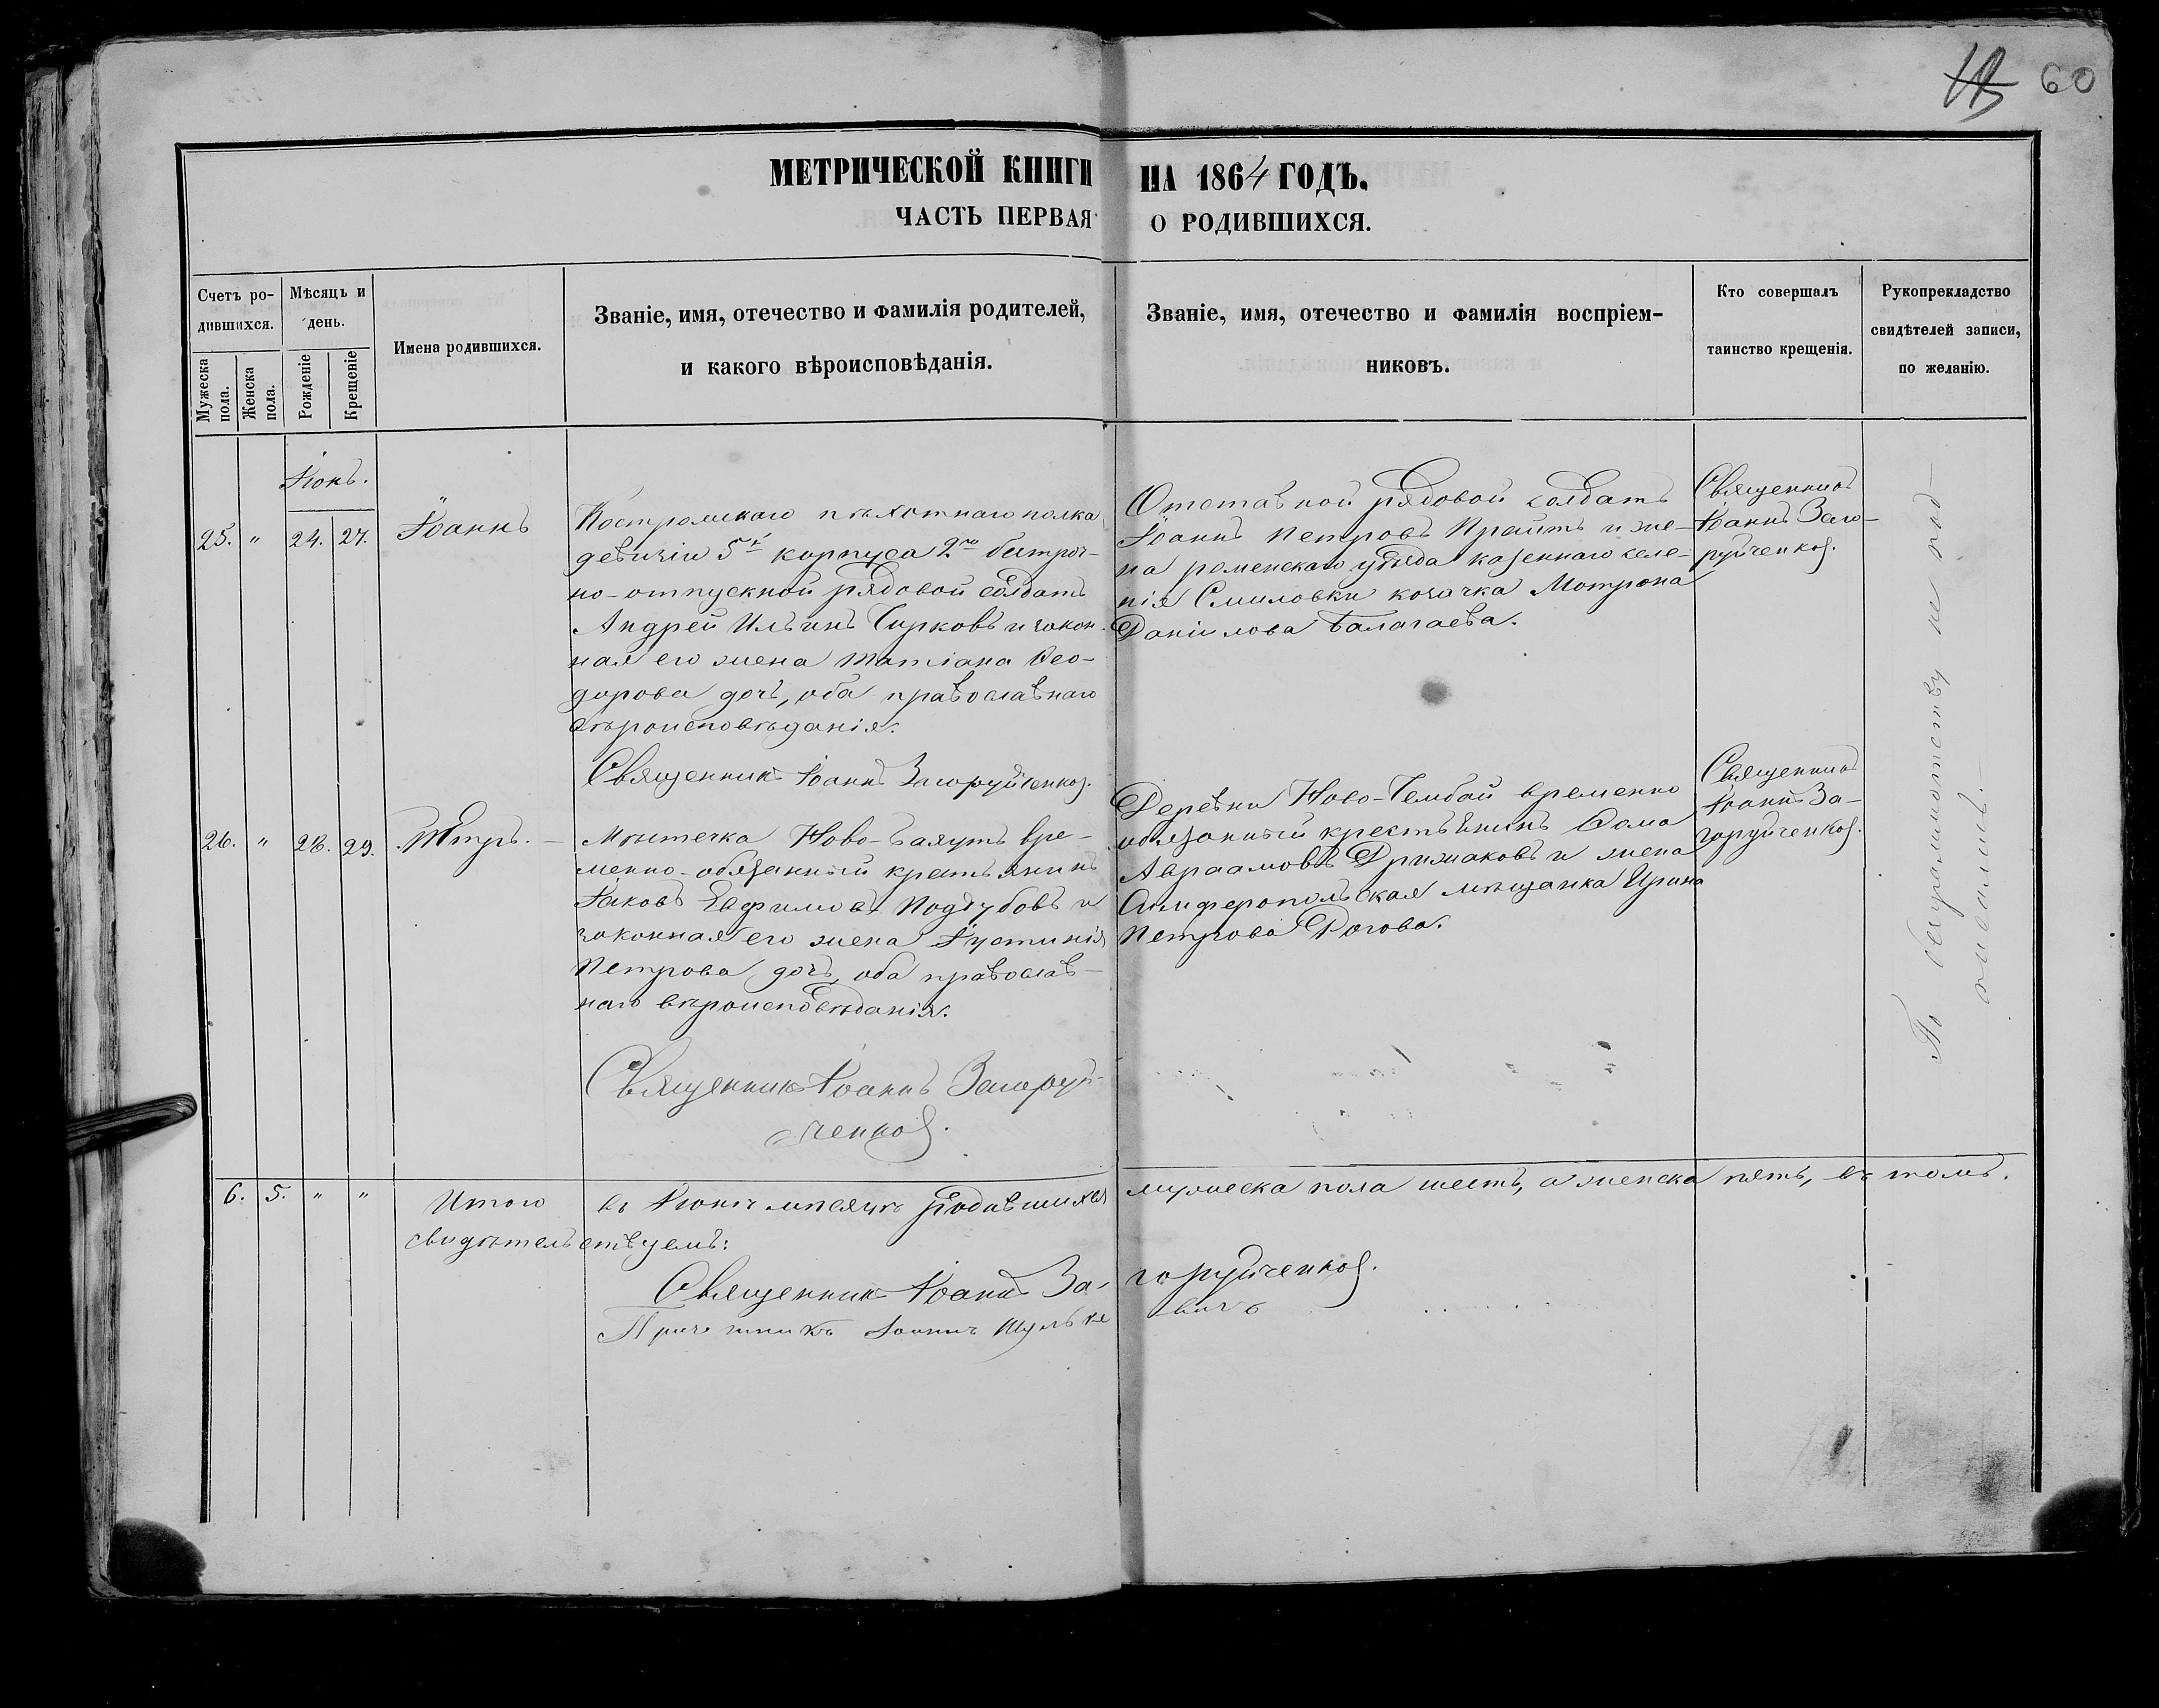 60
МЕТРИЧЕСКОЙ КНИГИ НА 1864 ГОДЪ.
ЧАСТЬ ПЕРВАЯ О РОДИВШИХСЯ.
Счетъ ро-
дившихся.
Мужеска
пола.
Женска
пола.
Мѣсяць и
день.
Рожденіе
Крещеніе
Имена родившихся.
Званіе, имя, отечество и фамилія родителей,
и какого вѣроисповѣданія.
Званіе, имя, отечество и фамилія воспріем-
никовъ.
Кто совершалъ
таинство крещенія.
Рукопрекладство
свидѣтелей записи,
по желанію.
Іюнь.
25. " 24. 27. Іоаннъ
Костромскаго пѣхотнаго полка
дивизіи 5й корпуса 2го безсроч-
но-отпускной рядовой солдатъ
Андрей Ильинъ Чирковъ и закон-
ная его жена Татіана Ѳео-
дорова дочь, оба православнаго
вѣроисповѣданія.
Священникъ Іоаннъ Загоруйченко.
Отставной рядовой солдатъ
Іоаннъ Петровъ и же-
на роменскаго уѣзда казеннаго селе-
нія Смиловки козачка Мотрона
Даніилова
Священникъ
Іоаннъ Заго-
руйченко.
26. " 28. 29. Петръ.
Мѣстечка Ново- вре-
менно-обязанный крестьянинъ
Іаковъ Евфимовъ Поддубовъ и
законная его жена Іустинія
Петрова дочь, оба православ-
наго вѣроисповѣданія.
Священникъ Іоаннъ Загоруй-
ченко.
Деревни Ново- временно
обязанный крестьянинъ
Авраамовъ и жена
Симферопольская мѣщанка Ирина
Петрова Рогова.
Священникъ
Іоаннъ За-
горуйченко.
По безграмотству не под-
писались.
6. 5. " " Итого въ Іюнѣ мѣсяцѣ родившихся мужеска пола шесть, а женска пять, въ томъ.
свидѣтельствуемъ:
Священникъ Іоаннъ Загоруйченко.
Причетникъ Іоаннъ Шулькевичъ